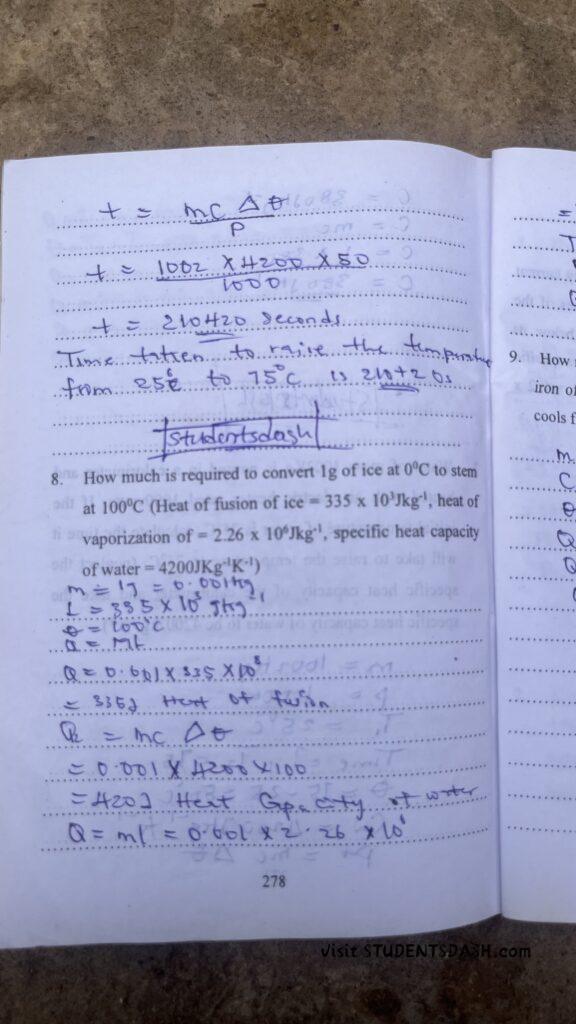 t = mc Δθ
P
t = 1002 x 4200 x 50
1000
t = 210420 seconds
Time tatten to raise the temperature
from 25°c to 75°c is 210420s
studentsdash
8. How much is required to convert 1g of ice at 0⁰C to stem
at 100⁰C (Heat of fusion of ice = 335 x 10³Jkg⁻¹, heat of
vaporization of = 2.26 x 10⁶Jkg⁻¹, specific heat capacity
of water = 4200JKg⁻¹K⁻¹)
m = 1g = 0.001kg
L = 335 x 10³ Jkg⁻¹
θ = 100°c
Q = ML
Q = 0.001 x 335 x 10³
= 335J Heat of fusion
Q = mc Δθ
= 0.001 x 4200 x 100
= 420J Heat Capacity of water
Q = ml = 0.001 x 2.26 x 10⁶
278
9. How
iron of
cools f
m
C
θ
Q
Q
Visit STUDENTSDASH.com